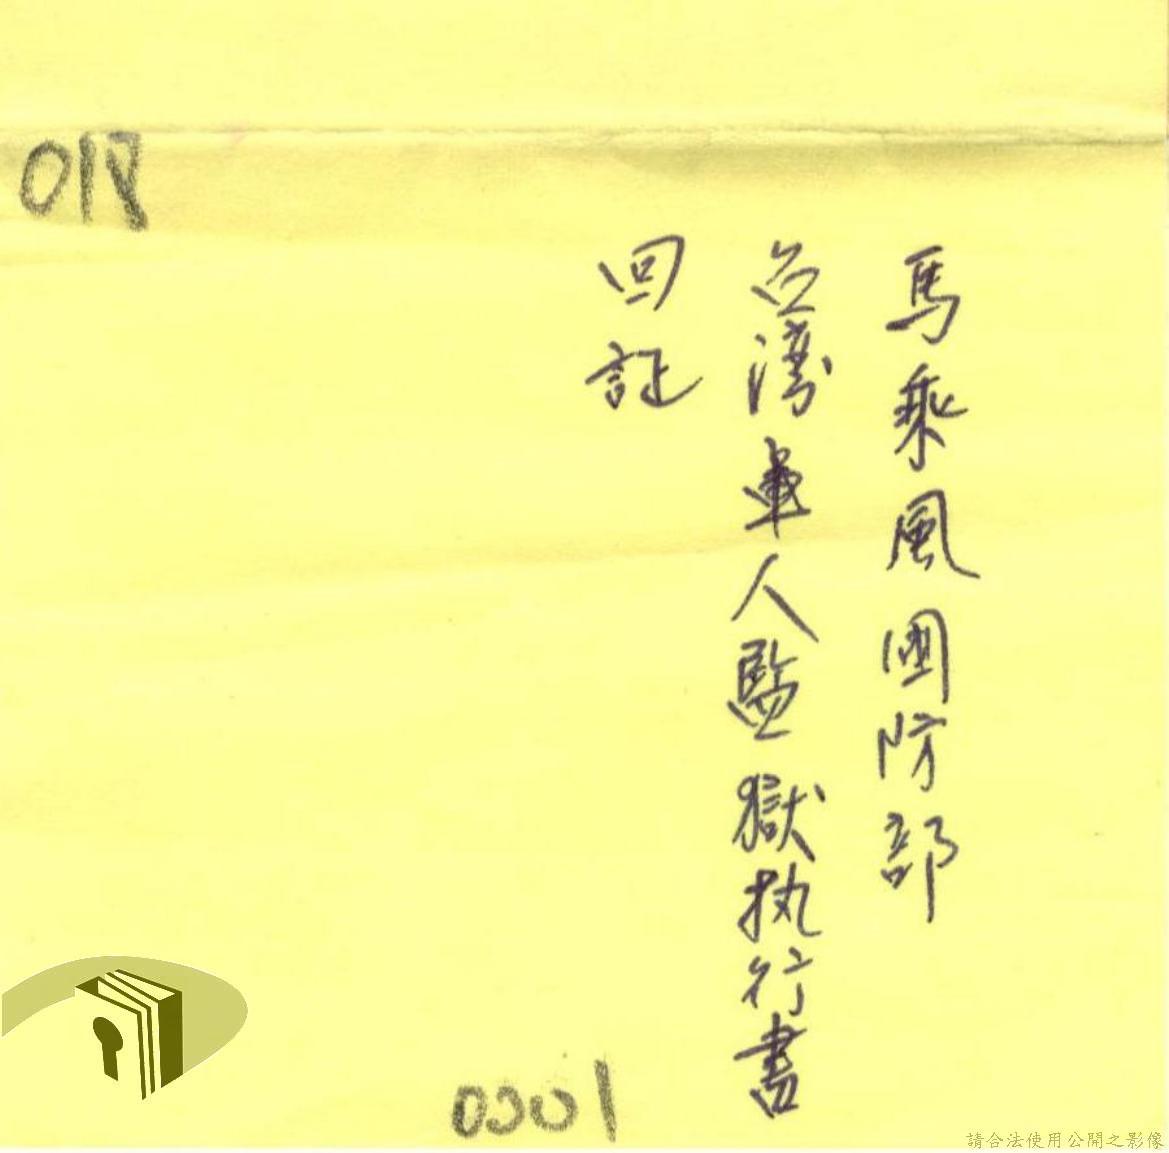 018
馬乘風國防部
台灣軍人監獄执行書
回証
0001
請合法使用公開之影像